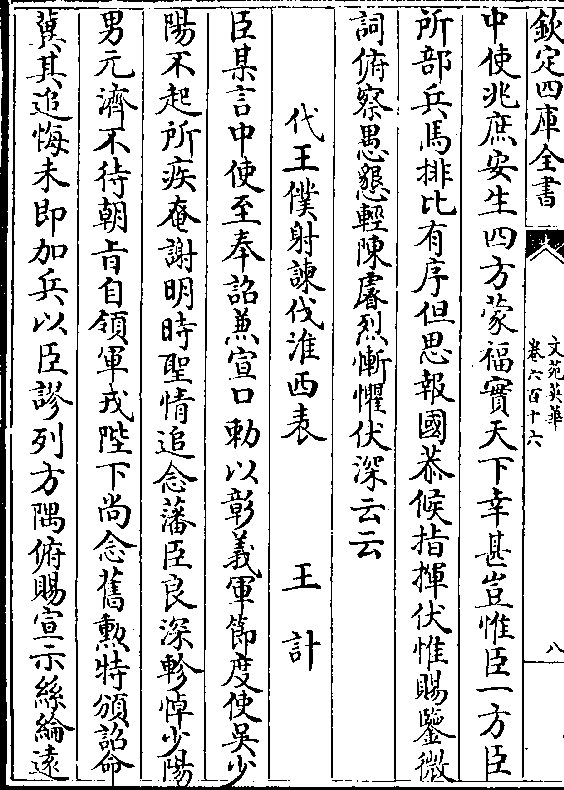 欽定四庫全書
文苑英華
卷六百十六
八
中使兆庶安生四方蒙福實天下幸甚豈惟臣一方臣
所部兵馬排比有序但思報國恭候指揮伏惟賜鑒微
詞俯察愚懇輕陳睿烈慚懼伏深云云
代王僕射諫伐淮西表 王計
臣某言中使至奉詔兼宣口勅以彰義軍節度使吳少
陽不起所疾奄謝明時聖情追念藩臣良深軫悼少陽
男元濟不待朝旨自領軍戎陛下尚念舊勲特頒詔命
冀其追悔未即加兵以臣謬列方隅俯賜宣示絲綸遠